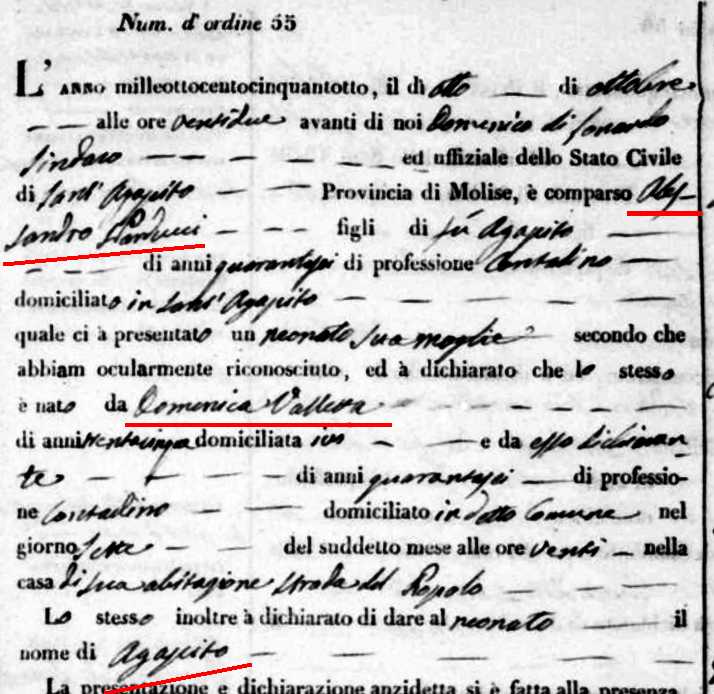 Num. d'ordine 55
L'ANNO milleottocentocinquantotto, il dì otto — di ottobre
— — alle ore ventidue avanti di noi Domenico di
Sindaco — — — — — ed uffiziale dello Stato Civile
di Sant'Agapito — — Provincia di Molise, è comparso Ales-
sandro — — — figli di fù Agapito —
— — — di anni quarantasei di professione Contadino —
domiciliato in Sant'Agapito — — — — —
quale ci à presentato un neonato sua moglie secondo che
abbiam ocularmente riconosciuto, ed à dichiarato che lo stesso
è nato da Domenica Valletta — — — — —
di anni trentacinque domiciliata ivi — — e da esso dichiaran-
te — — — — di anni quarantasei — di professio-
ne Contadino — — domiciliato in detto Comune nel
giorno sette — — del suddetto mese alle ore venti — nella
casa di sua abitazione strada del Popolo — — —
Lo stesso inoltre à dichiarato di dare al neonato — il
nome di Agapito — — — — — —
La presentazione e dichiarazione anzidetta si è fatta alla presenza